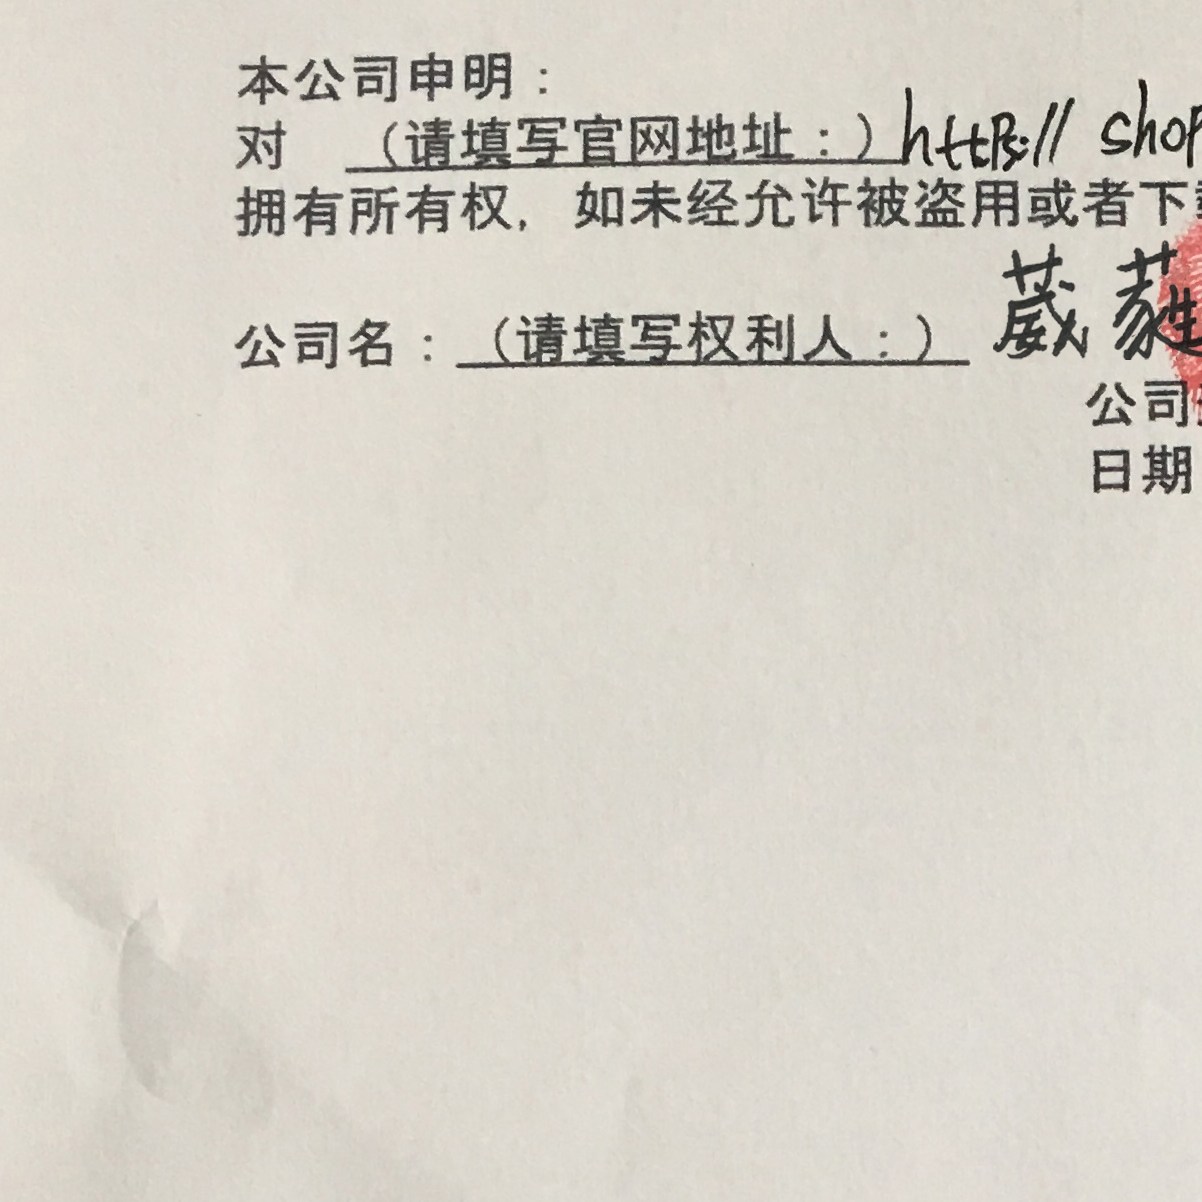 本公司申明：
对 （请填写官网地址：）https:// shop
拥有所有权，如未经允许被盗用或者下
公司名：（请填写权利人：）葳蕤
公司
日期